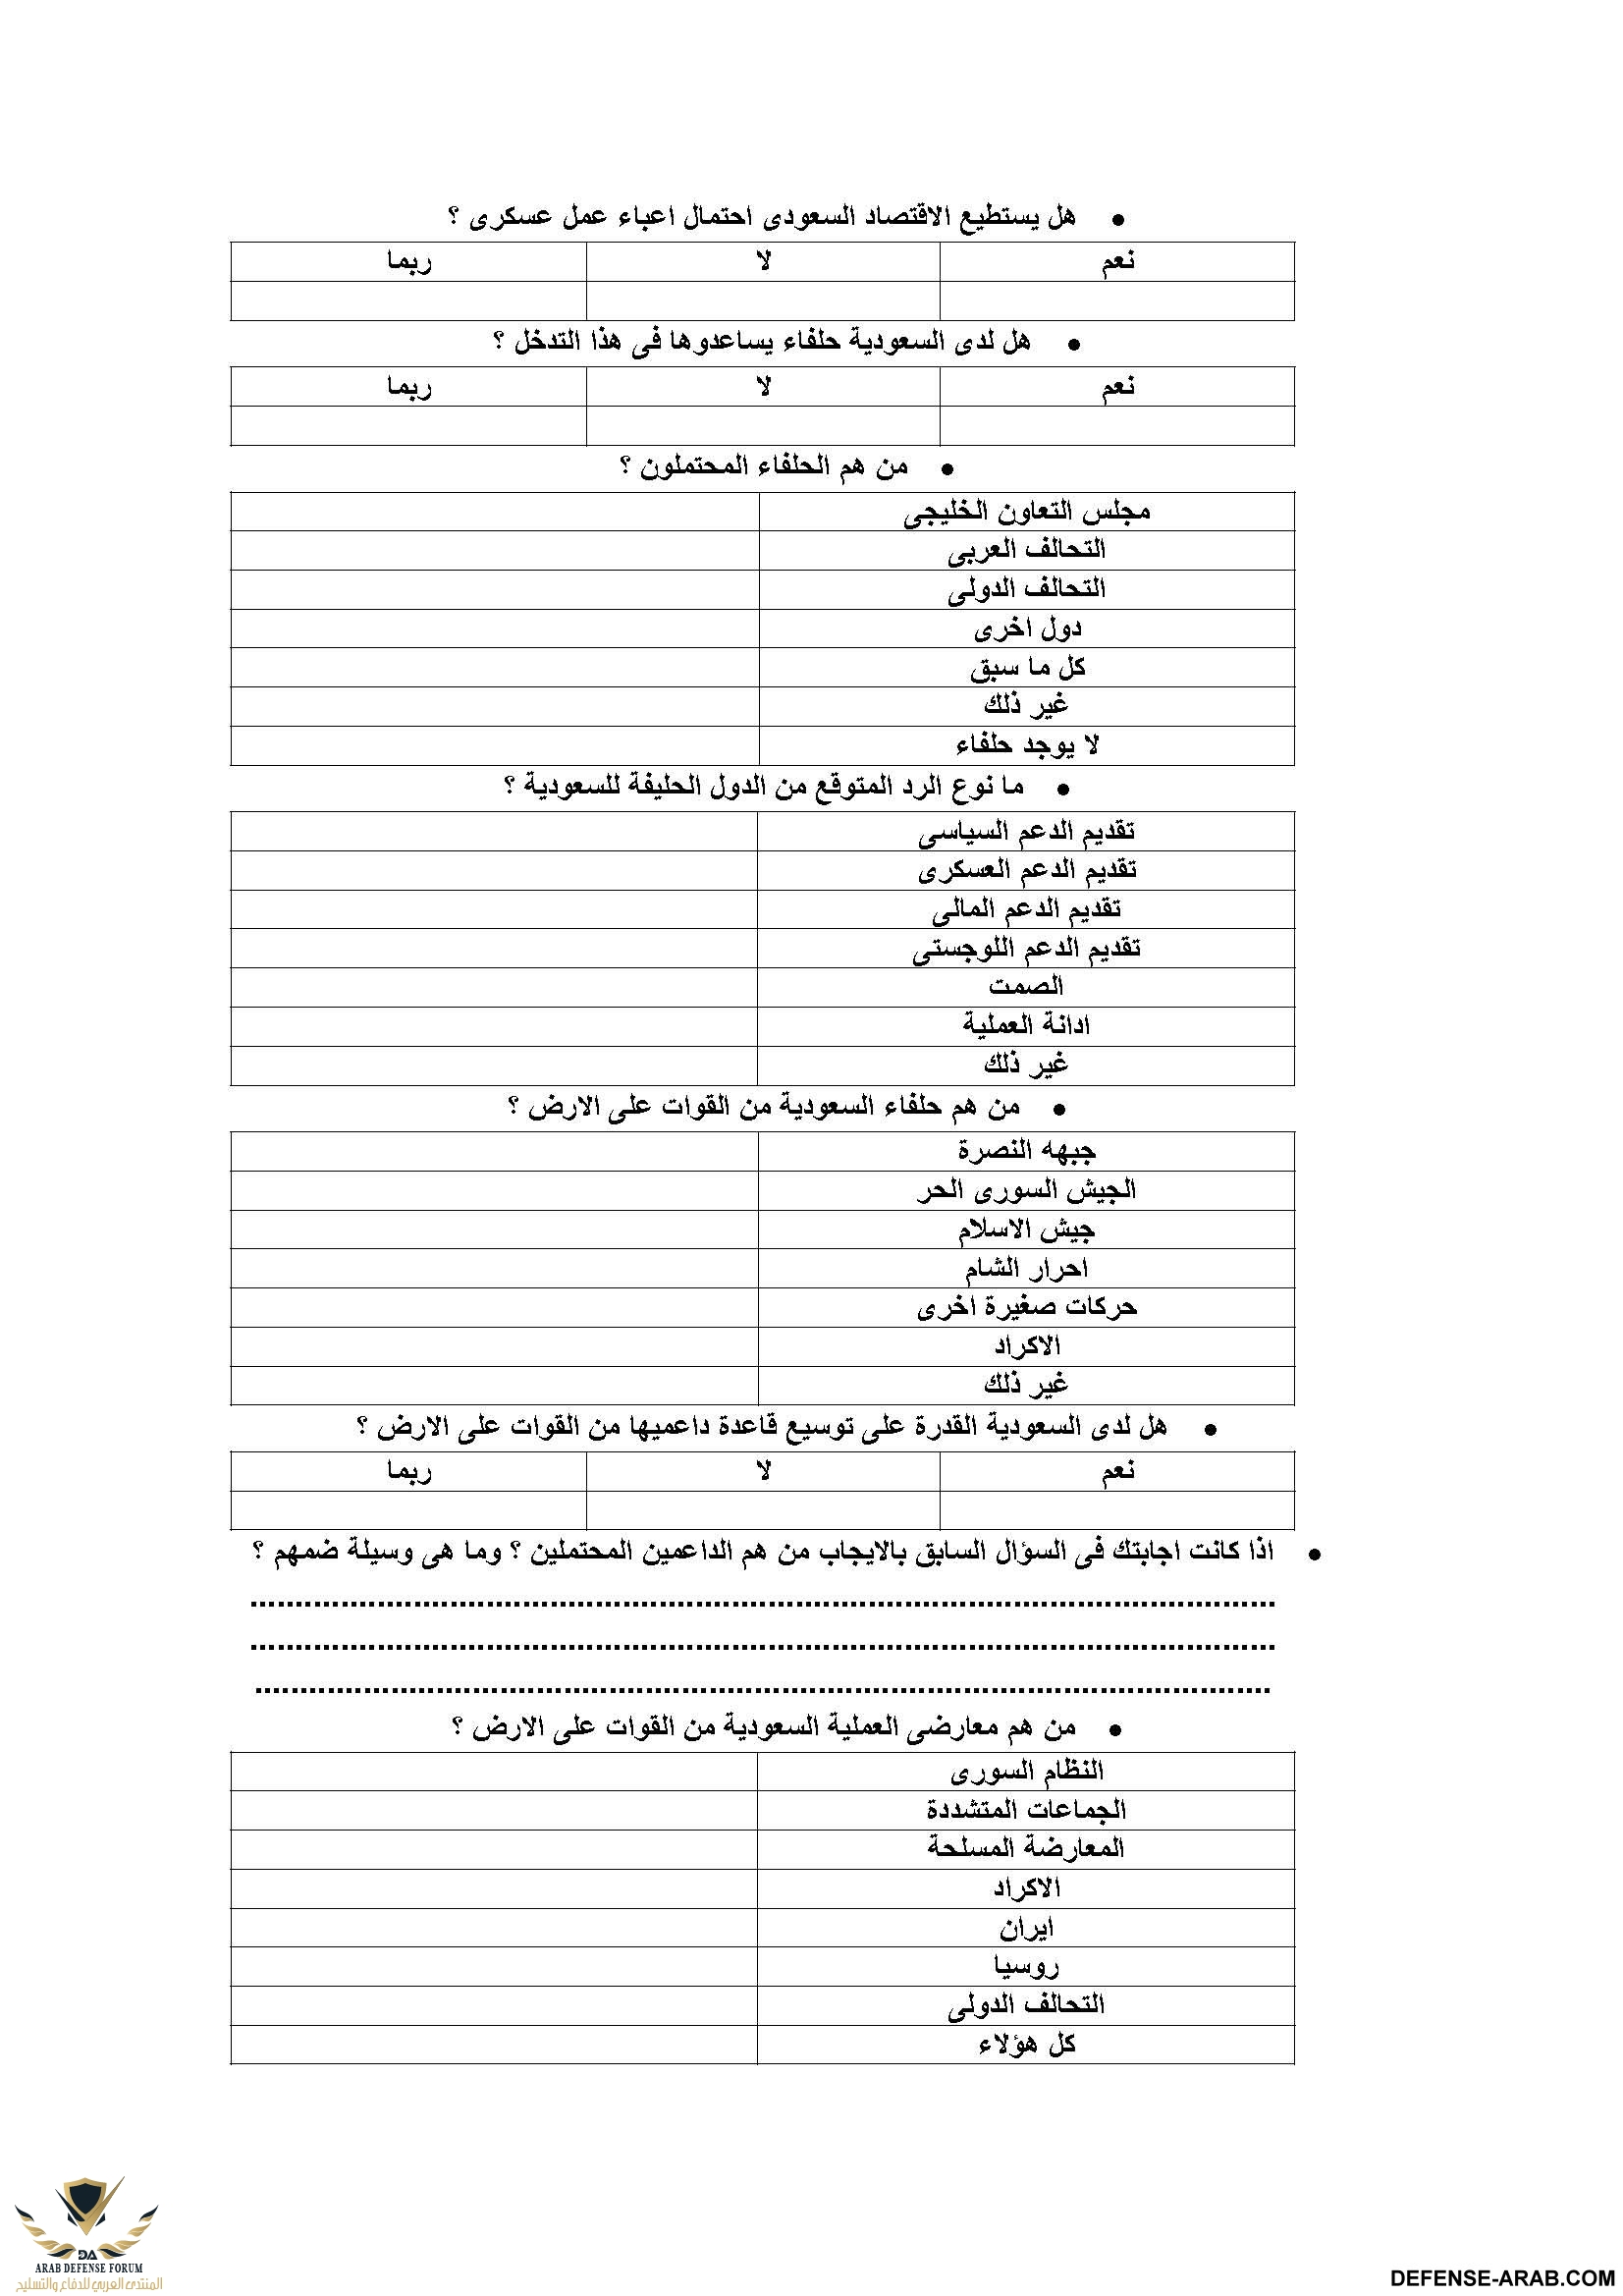 • هل يستطيع الاقتصاد السعودى احتمال اعباء عمل عسكرى ؟
نعم لا ربما
• هل لدى السعودية حلفاء يساعدوها فى هذا التدخل ؟
نعم لا ربما
• من هم الحلفاء المحتملون ؟
مجلس التعاون الخليجى
التحالف العربى
التحالف الدولى
دول اخرى
كل ما سبق
غير ذلك
لا يوجد حلفاء
• ما نوع الرد المتوقع من الدول الحليفة للسعودية ؟
تقديم الدعم السياسى
تقديم الدعم العسكرى
تقديم الدعم المالى
تقديم الدعم اللوجستى
الصمت
ادانة العملية
غير ذلك
• من هم حلفاء السعودية من القوات على الارض ؟
جبهه النصرة
الجيش السورى الحر
جيش الاسلام
احرار الشام
حركات صغيرة اخرى
الاكراد
غير ذلك
• هل لدى السعودية القدرة على توسيع قاعدة داعميها من القوات على الارض ؟
نعم لا ربما
• اذا كانت اجابتك فى السؤال السابق بالايجاب من هم الداعمين المحتملين ؟ وما هى وسيلة ضمهم ؟
• من هم معارضى العملية السعودية من القوات على الارض ؟
النظام السورى
الجماعات المتشددة
المعارضة المسلحة
الاكراد
ايران
روسيا
التحالف الدولى
كل هؤلاء
DA
ARAB DEFENSE FORUM
المنتدى العربي للدفاع والتسليح
DEFENSE-ARAB.COM